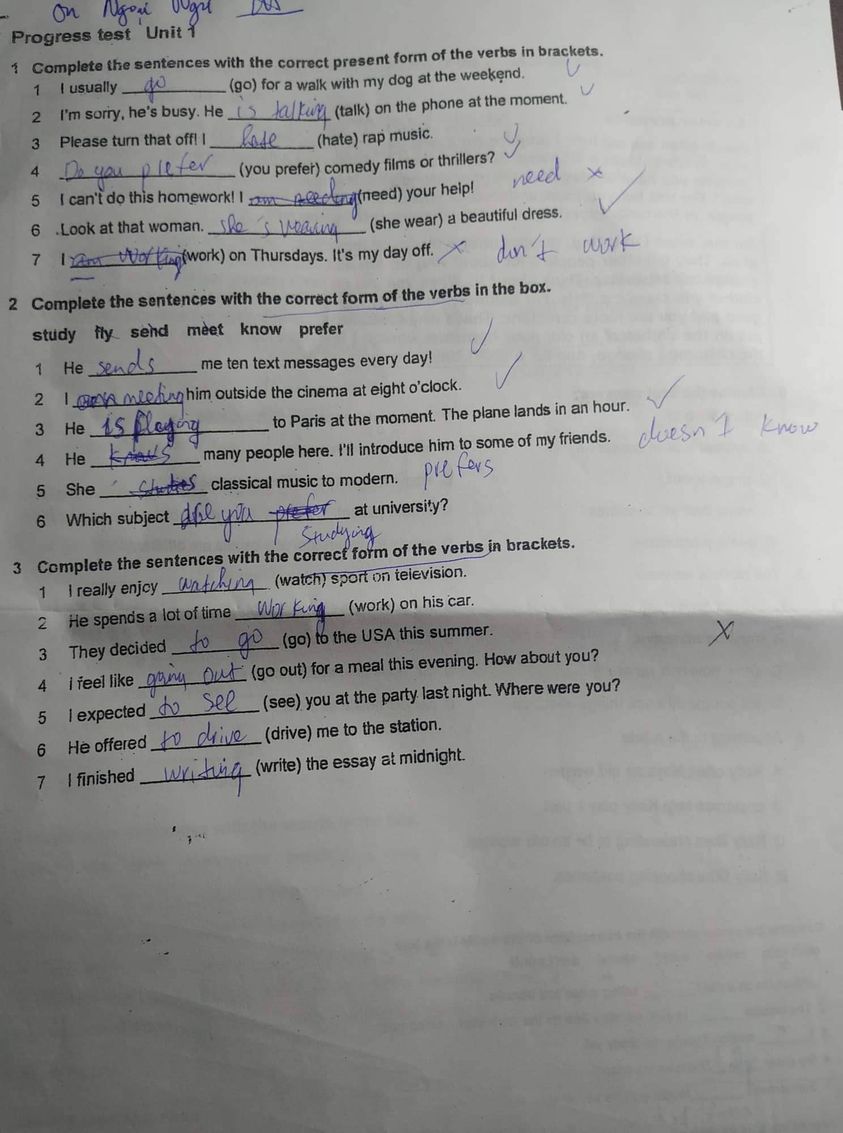 Ôn Ngoại Ngữ
Progress test Unit 1
1 Complete the sentences with the correct present form of the verbs in brackets.
1 I usually go (go) for a walk with my dog at the weekend.
2 I'm sorry, he's busy. He is talking (talk) on the phone at the moment.
3 Please turn that off! I hate (hate) rap music.
4 Do you prefer (you prefer) comedy films or thrillers?
5 I can't do this homework! I am needing (need) your help! need x
6 .Look at that woman. she's wearing (she wear) a beautiful dress.
7 I am working (work) on Thursdays. It's my day off. x don't work
2 Complete the sentences with the correct form of the verbs in the box.
study fly send meet know prefer
1 He sends me ten text messages every day!
2 I meeting him outside the cinema at eight o'clock.
3 He is to Paris at the moment. The plane lands in an hour.
4 He knows many people here. I'll introduce him to some of my friends. doesn't know
5 She studies classical music to modern. prefers
6 Which subject are you prefer at university?
studying
3 Complete the sentences with the correct form of the verbs in brackets.
1 I really enjoy watching (watch) sport on television.
2 He spends a lot of time working (work) on his car.
3 They decided to go (go) to the USA this summer. X
4 I feel like going out (go out) for a meal this evening. How about you?
5 I expected to see (see) you at the party last night. Where were you?
6 He offered to drive (drive) me to the station.
7 I finished writing (write) the essay at midnight.